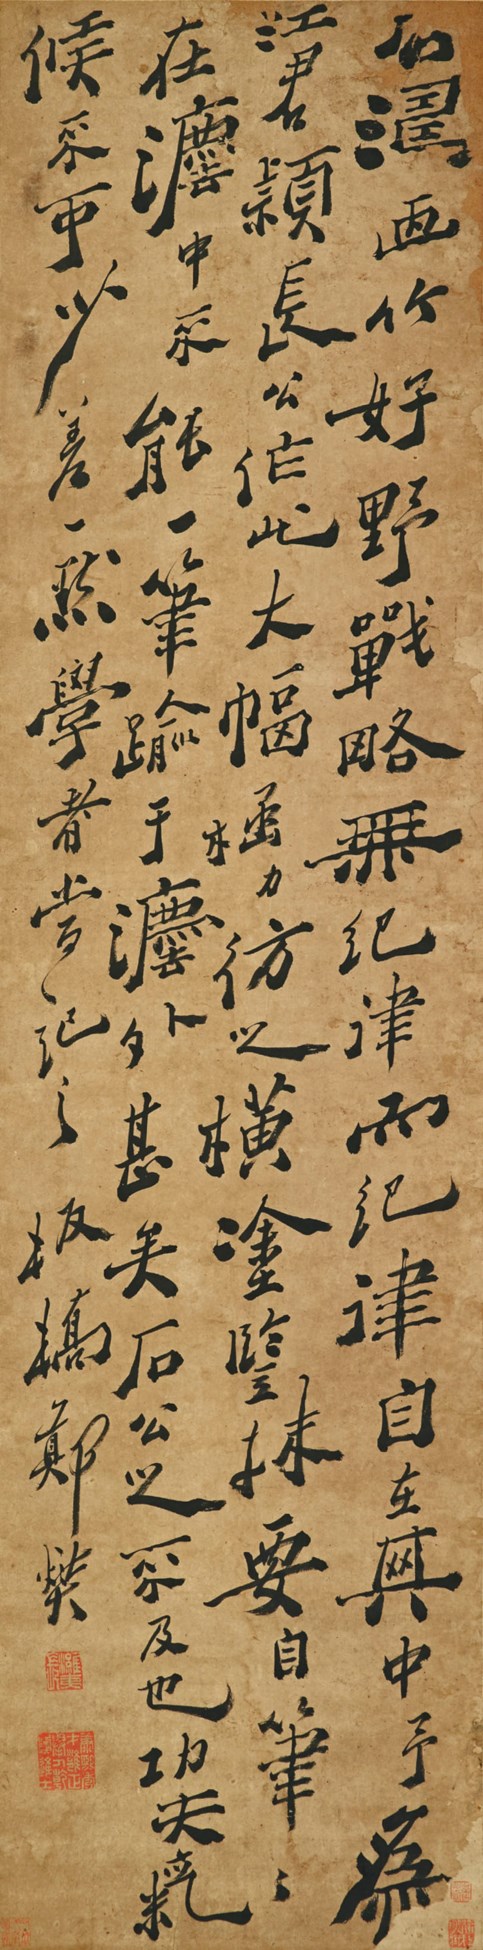 石濤画竹好野戰略無紀律而紀律自在其中予為
江君頴長公作此大幅極力仿之橫塗豎抹要自筆〻
在灋中不能一筆踰于灋外甚矣石公之不及也功夫氣
候不可少差一點學者當記之板橋鄭燮